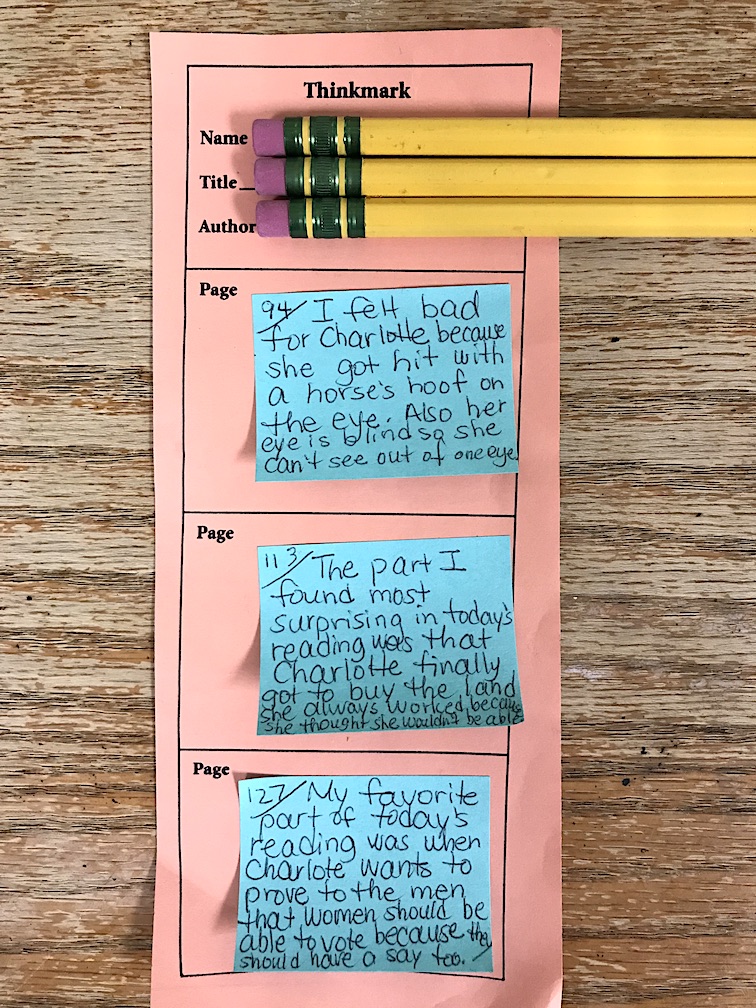 Thinkmark
Name
Title
Author
Page
94/ I felt bad
for Charlotte because
she got hit with
a horse's hoof on
the eye. Also her
eye is blind so she
can't see out of one eye.
Page
113/ The part I
found most
surprising in today's
reading was that
Charlotte finally
got to buy the land
she always worked, because
she thought she wouldn't be able
Page
127/ My favorite
part of today's
reading was when
Charlote wants to
prove to the men
that women should be
able to vote because they
should have a say too.